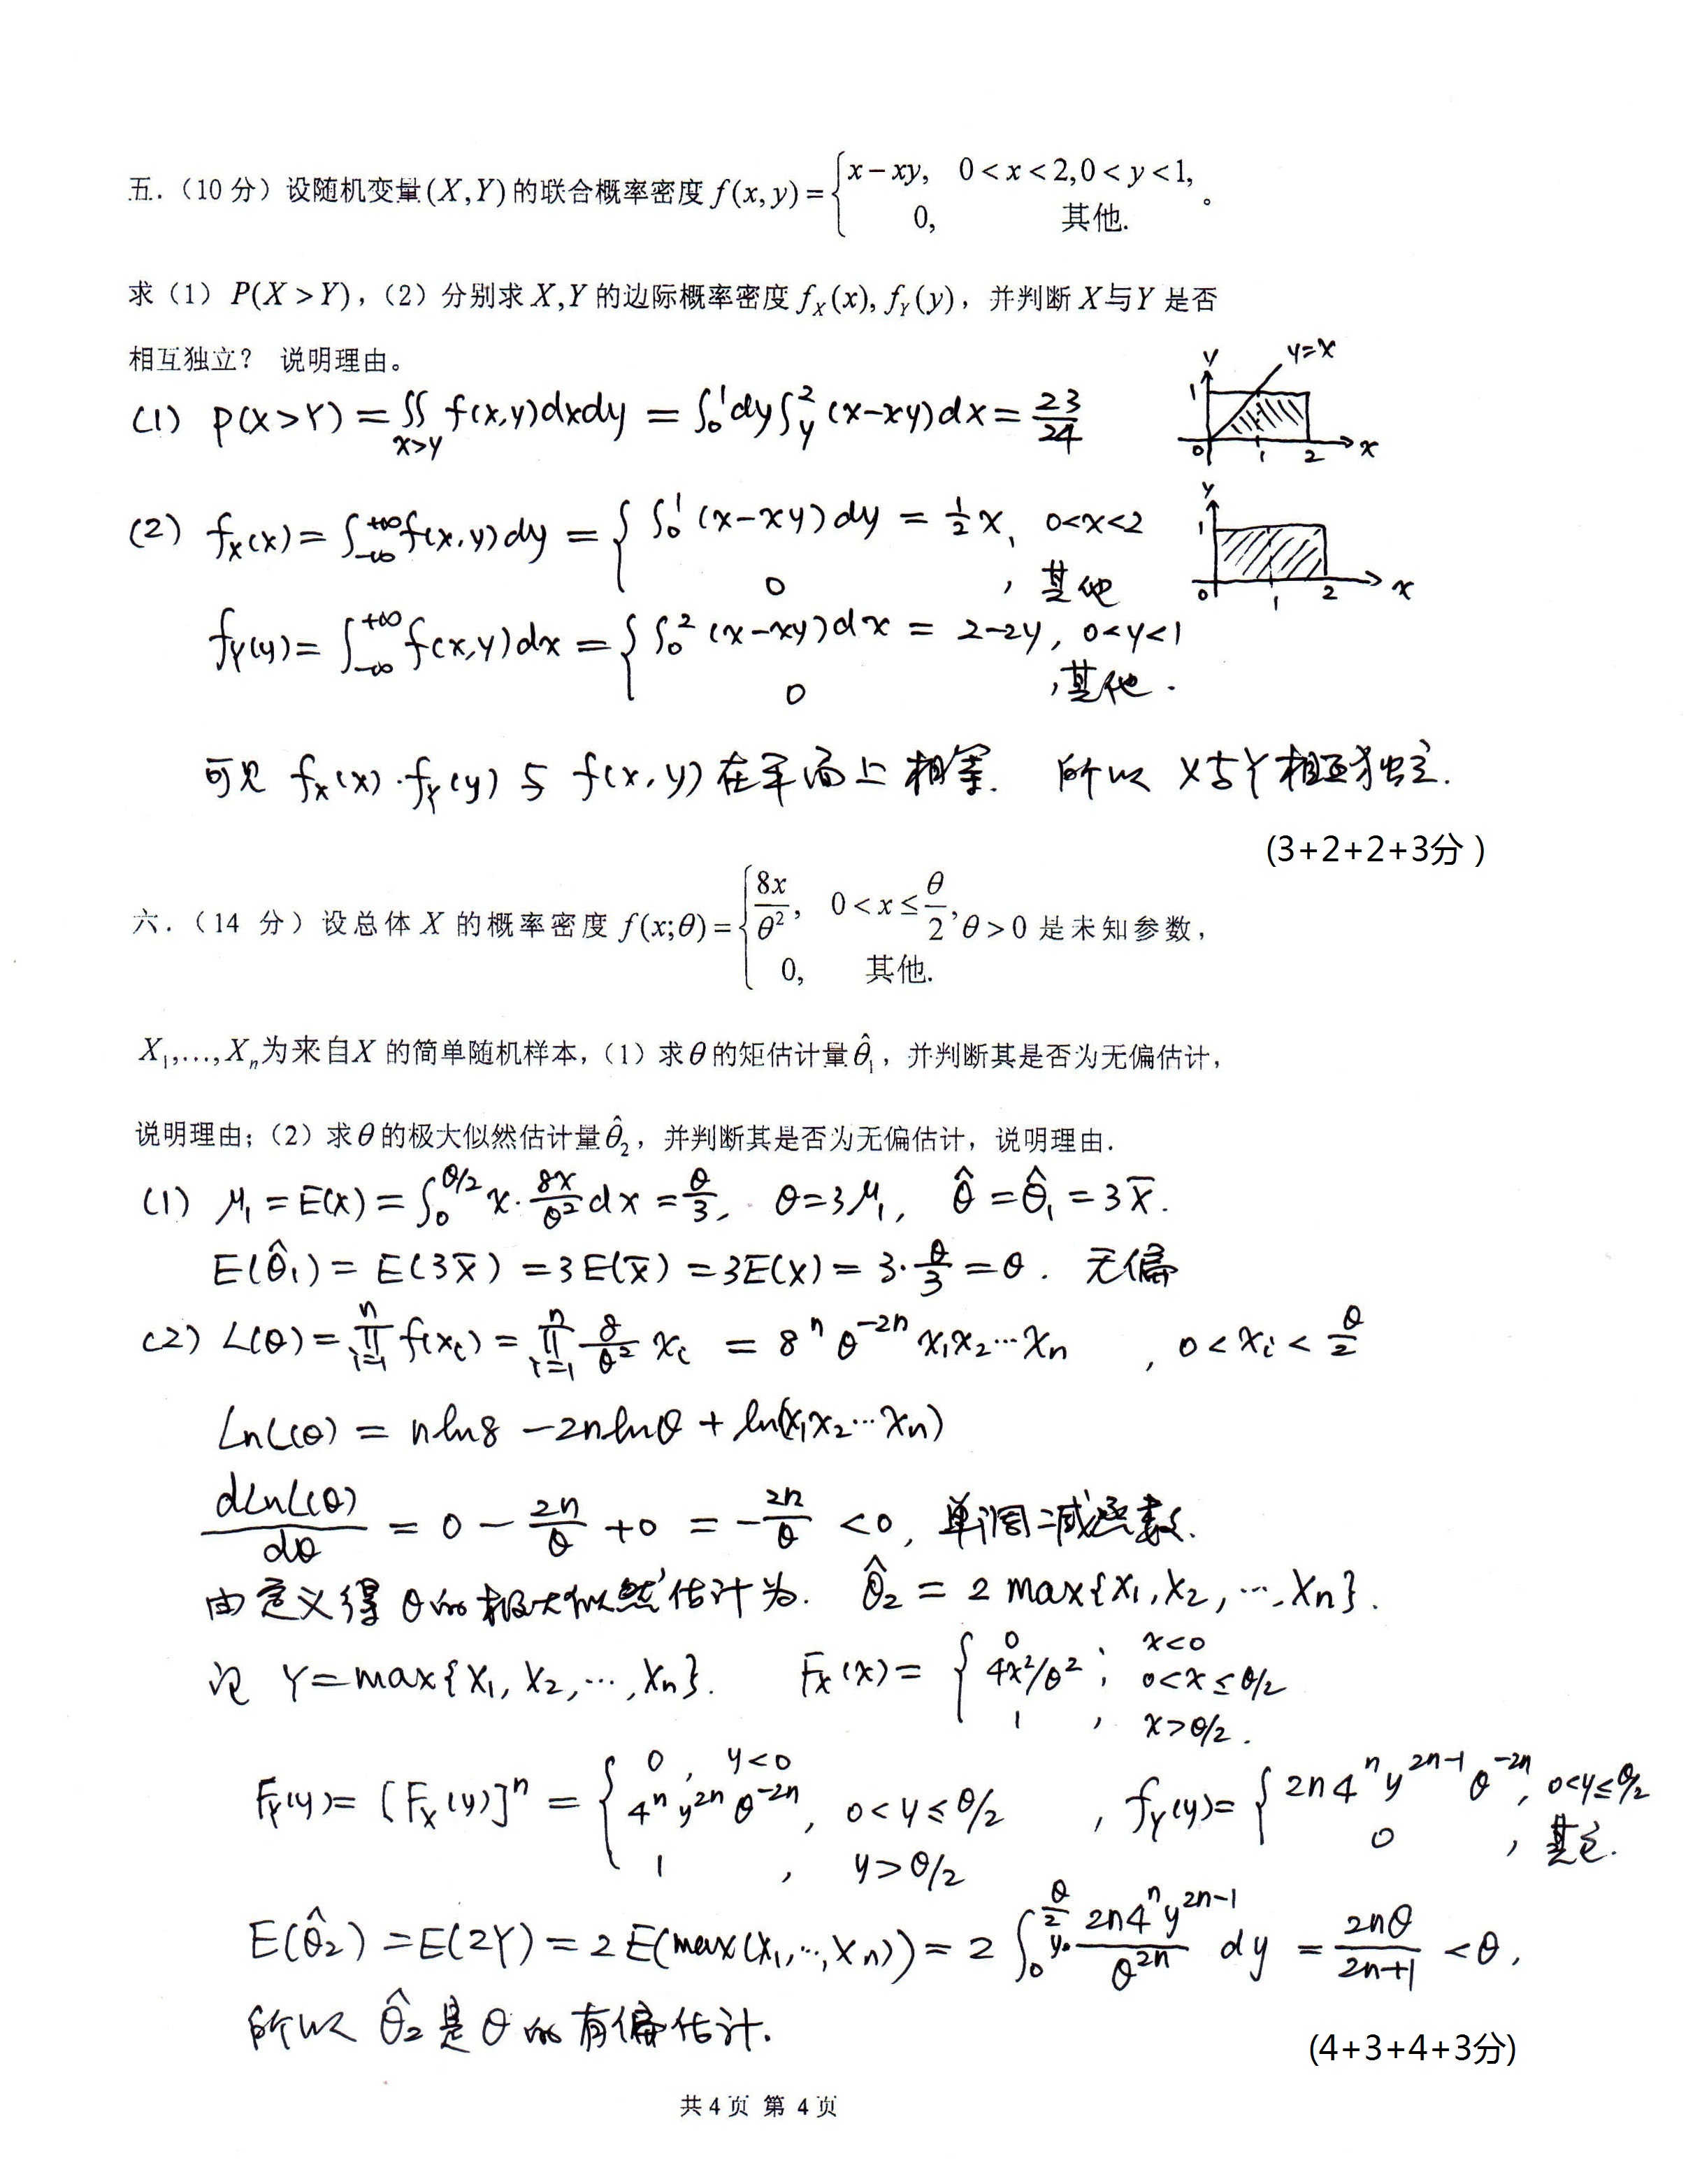 五.（10 分）设随机变量(X,Y)的联合概率密度 f(x,y)={x−xy, 0<x<2,0<y<1,
0, 其他. 。
求（1）P(X>Y),（2）分别求X,Y的边际概率密度f_X(x), f_Y(y)，并判断X与Y是否
相互独立？ 说明理由。
(1) P(X>Y) = ∬_{x>y} f(x,y)dxdy = ∫₀¹dy∫_y²(x−xy)dx = 23/24
y y=x 1 0 1 2 x
(2) f_X(x) = ∫_{-∞}^{+∞} f(x,y)dy = { ∫₀¹(x−xy)dy = ½x, 0<x<2
0 , 其他
y 1 0 1 2 x
f_Y(y) = ∫_{-∞}^{+∞} f(x,y)dx = { ∫₀²(x−xy)dx = 2−2y, 0<y<1
0 ,其他.
可见 f_X(x)·f_Y(y) 与 f(x,y) 在平面上相等. 所以 X与Y相互独立.
(3+2+2+3分)
六.（14 分）设总体 X 的概率密度 f(x;θ)={8x/θ², 0<x≤θ/2, θ>0 是未知参数，
0, 其他.
X₁,…,X_n为来自X 的简单随机样本,（1）求θ的矩估计量θ̂₁，并判断其是否为无偏估计，
说明理由;（2）求θ的极大似然估计量θ̂₂，并判断其是否为无偏估计，说明理由.
(1) μ₁ = E(X) = ∫₀^{θ/2} x·8x/θ² dx = θ/3, θ=3μ₁, θ̂ = θ̂₁ = 3X̄.
E(θ̂₁) = E(3X̄) = 3E(X̄) = 3E(X) = 3·θ/3 = θ. 无偏
(2) L(θ) = ∏_{i=1}^n f(x_i) = ∏_{i=1}^n 8/θ² x_i = 8ⁿ θ^{-2n} x₁x₂…x_n , 0<x_i<θ/2
LnL(θ) = nln8 −2nlnθ + ln(x₁x₂…x_n)
dLnL(θ)/dθ = 0 − 2n/θ +0 = −2n/θ <0, 单调减函数.
由定义得 θ的极大似然估计为. θ̂₂ = 2 max{X₁,X₂,…,X_n}.
记 Y=max{X₁,X₂,…,X_n}. F_X(x) = { 0 ; x<0
4x²/θ² ; 0<x≤θ/2
1 , x>θ/2.
F_Y(y) = [F_X(y)]ⁿ = { 0, y<0
4ⁿy^{2n}θ^{-2n}, 0<y≤θ/2 , f_Y(y)= { 2n4ⁿy^{2n-1}θ^{-2n}, 0<y≤θ/2
1 , y>θ/2 0 , 其它.
E(θ̂₂) = E(2Y) = 2E(max(X₁,…,X_n)) = 2∫₀^{θ/2} y·2n4ⁿy^{2n-1}/θ^{2n} dy = 2nθ/(2n+1) <θ,
所以 θ̂₂是θ的有偏估计.
(4+3+4+3分)
共 4 页 第 4 页